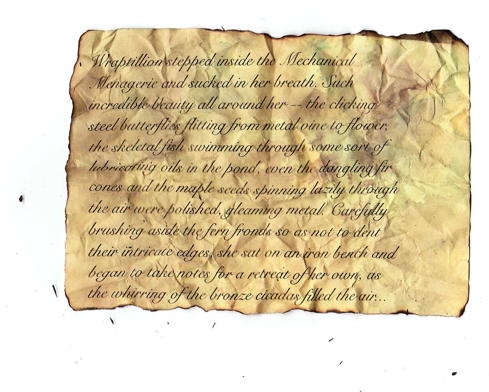 Wraptillion stepped inside the Mechanical
Menagerie and sucked in her breath. Such
incredible beauty all around her -- the clicking
steel butterflies flitting from metal vine to flower,
the skeletal fish swimming through some sort of
lubricating oils in the pond, even the dangling fir
cones and the maple seeds spinning lazily through
the air were polished, gleaming metal. Carefully
brushing aside the fern fronds so as not to dent
their intricate edges, she sat on an iron bench and
began to take notes for a retreat of her own, as
the whirring of the bronze cicadas filled the air...